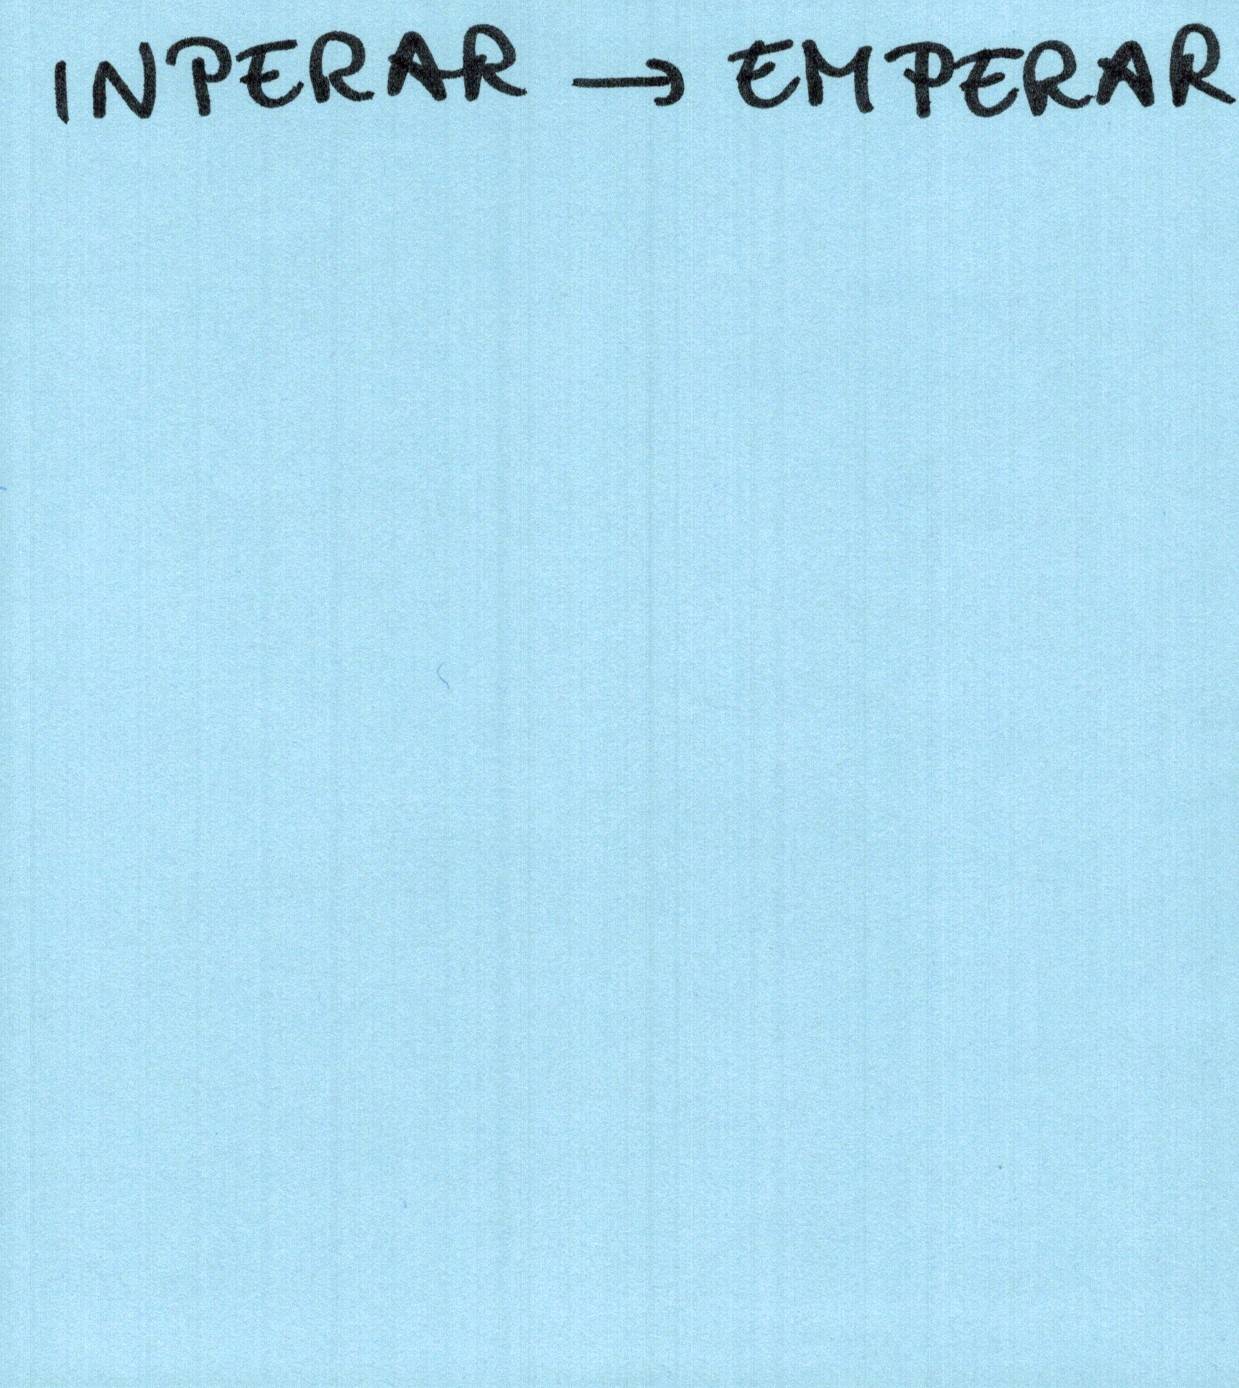 INPERAR → EMPERAR